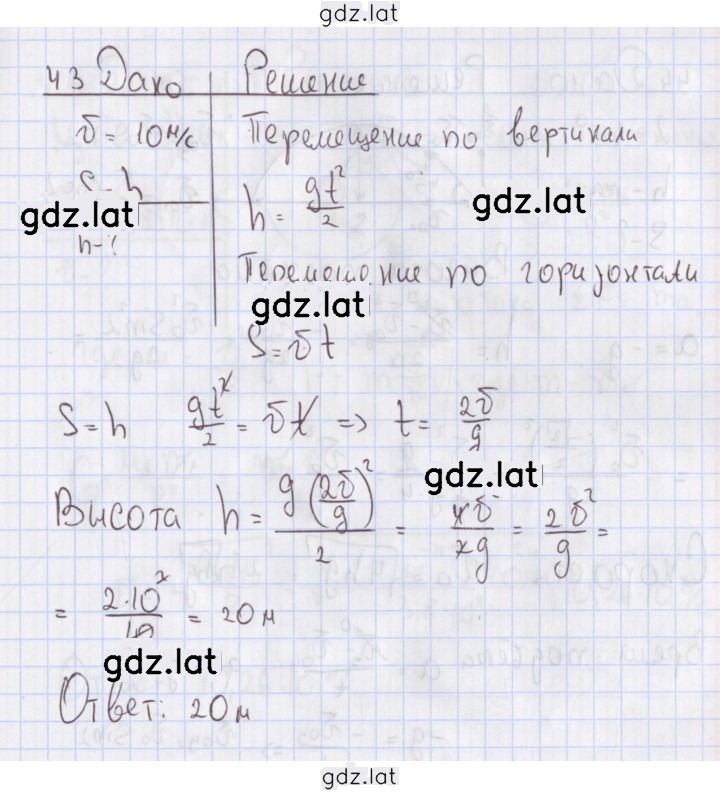 gdz.lat
43 Дано Решение
υ = 10 м/с Перемещение по вертикали
S = h
gdz.lat
h = gt²/2
gdz.lat
h - ?
Перемещение по горизонтали
gdz.lat
S = υt
S = h gt²/2 = υt => t = 2υ/g
gdz.lat
Высота h = g(2υ/g)²/2 = 4υ²/2g = 2υ²/g =
= 2·10²/10 = 20 м
gdz.lat
Ответ: 20 м
gdz.lat